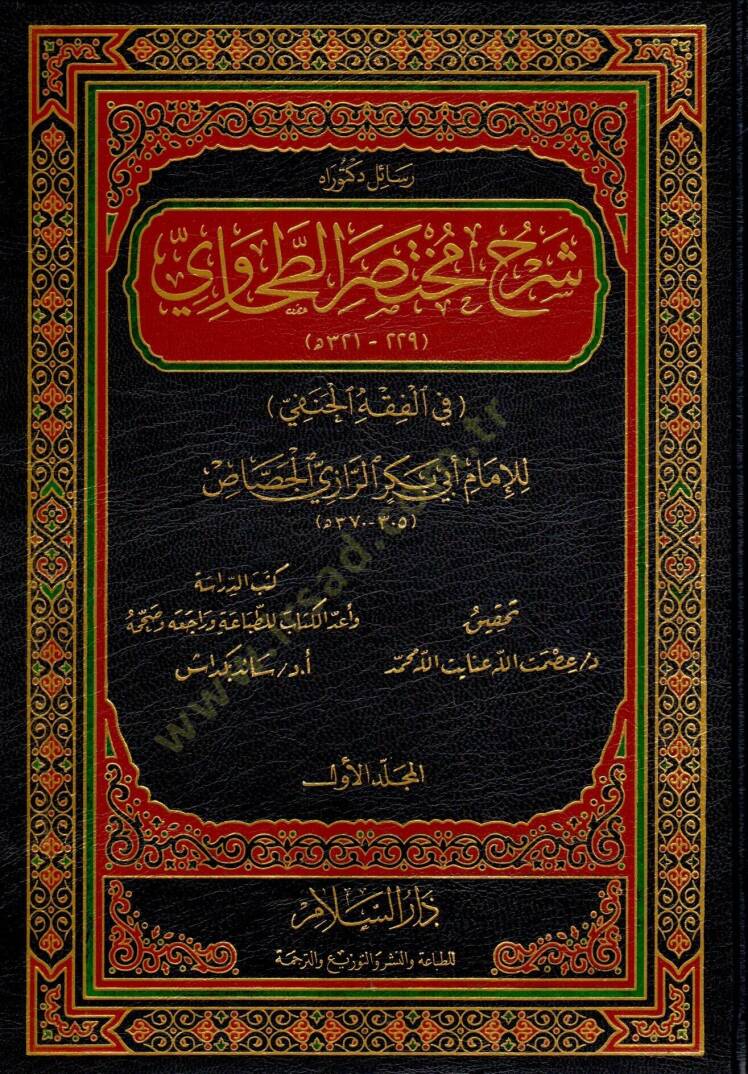 رسائل دكتوراه
شَرْحُ مُخْتَصَرِ الطَّحَاوِيِّ
(٢٢٩ - ٣٢١هـ)
(في الْفِقْهِ الْحَنَفِيّ)
لِلإِمَامِ أَبِي بَكْرٍ الرَّازِيِّ الْجَصَّاصِ
(٣٠٥-٣٧٠هـ)
تحقيق
د/عصمت الله عنايت الله محمد
كتب الدراسة
وأعدّ الكتاب للطباعة وراجعه وصحّحه
أ.د/سائد بكداش
المجلّد الأول
دار السلام
للطباعة والنشر والتوزيع والترجمة